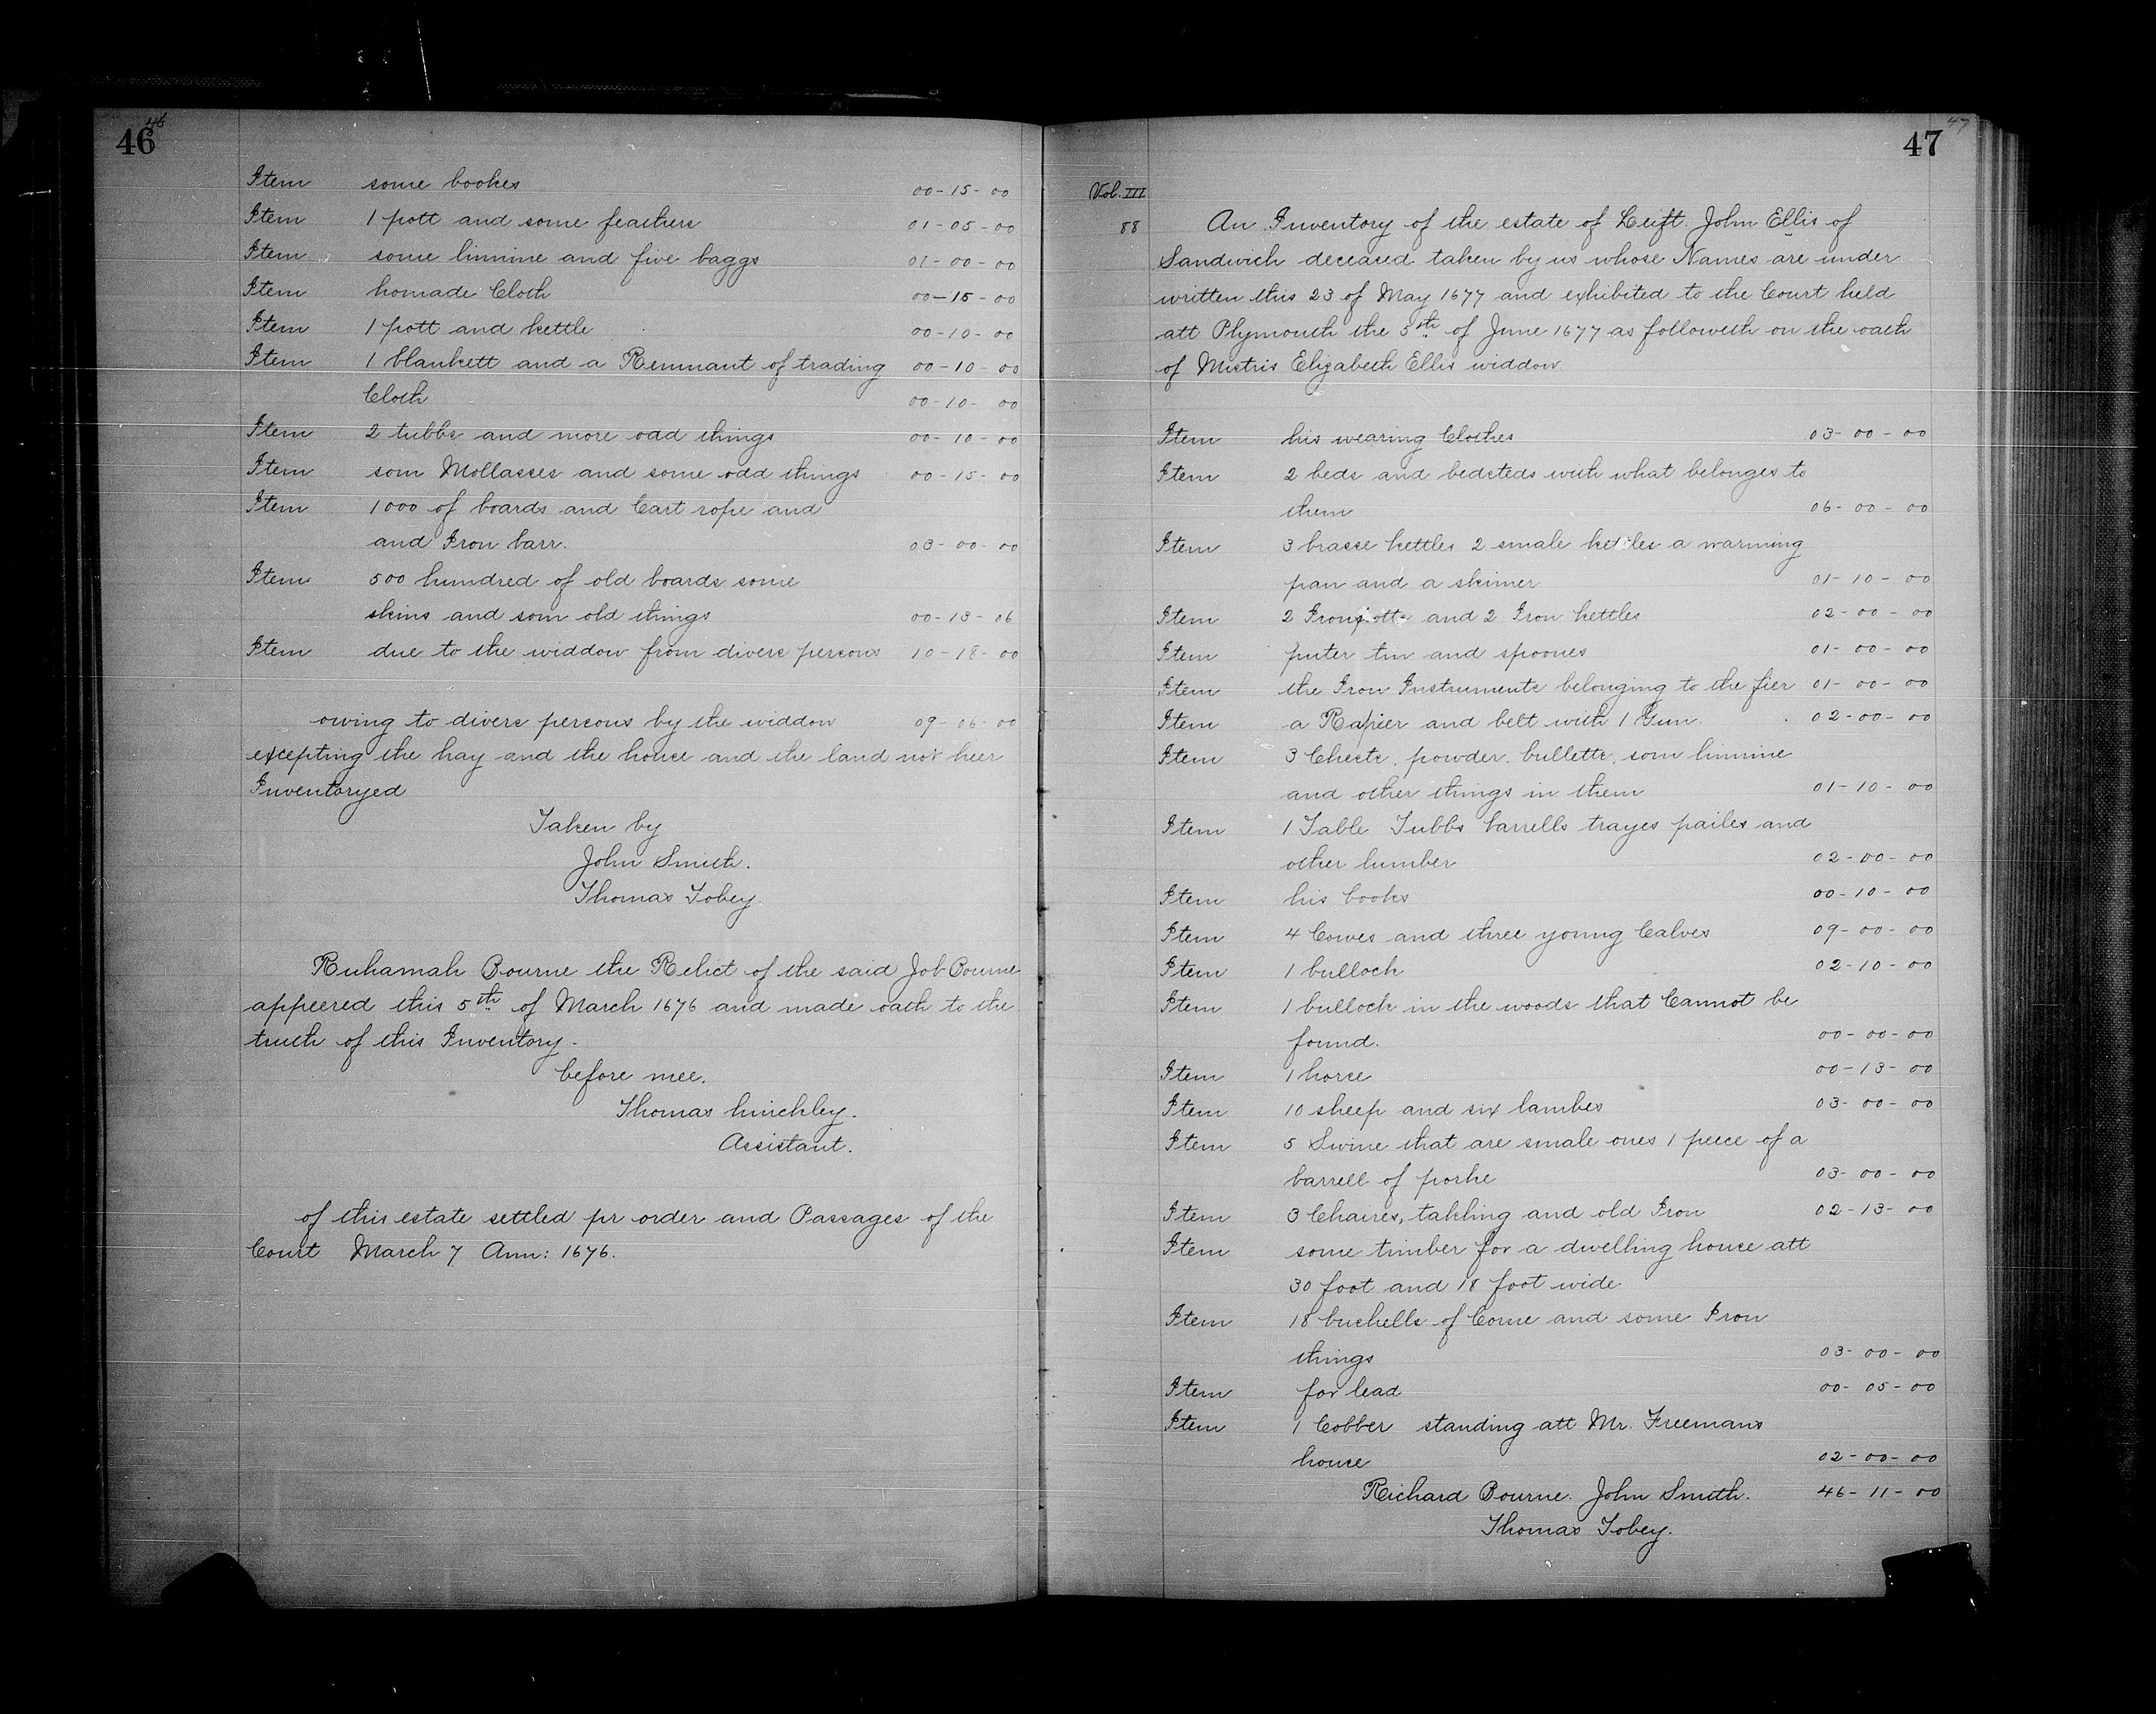 46
46
Item some bookes 00-15-00
Item 1 pott and some feathers 01-05-00
Item some linnine and five baggs 01-00-00
Item homade Cloth 00-15-00
Item 1 pott and kettle 00-10-00
Item 1 blankett and a Remnant of trading 00-10-00
Cloth 00-10-00
Item 2 tubbs and more odd things 00-10-00
Item som Mollasses and some odd things 00-15-00
Item 1000 of boards and Cart rope and
and Iron barr. 03-00-00
Item 500 hundred of old boards some
skins and som old things 00-13-06
Item due to the widdow from divers persons 10-18-00
owing to divers persons by the widdow 09-06-00
excepting the hay and the house and the land not heer
Inventoryed
Taken by
John Smith.
Thomas Tobey.
Ruhamah Bourne the Relict of the said Job Bourne
appeered this 5th of March 1676 and made oath to the
truth of this Inventory-
before mee.
Thomas hinckley.
Assistant.
of this estate settled pr order and Passages of the
Court March 7 Ann: 1676.
47
47
Vol. III
88 An Inventory of the estate of Leift. John Ellis of
Sandwich deceased taken by us whose Names are under
written this 23 of May 1677 and exhibited to the Court held
att Plymouth the 5th of June 1677 as followeth on the oath
of Mistris Elizabeth Ellis widdow
Item his wearing Clothes 03-00-00
Item 2 beds and bedsteds with what belonges to
them 06-00-00
Item 3 brasse kettles 2 smale kettles a warming
pan and a skimer 01-10-00
Item 2 Iron potts and 2 Iron kettles 02-00-00
Item puter tin and spoones 01-00-00
Item the Iron Instruments belonging to the fier 01-00-00
Item a Rapier and belt with 1 Gun. 02-00-00
Item 3 Chests, powder, bulletts, som linnine
and other things in them 01-10-00
Item 1 Table Tubbs barrells trayes pailes and
other lumber 02-00-00
Item his books 00-10-00
Item 4 Cowes and three young Calves 09-00-00
Item 1 bullock 02-10-00
Item 1 bullock in the woods that Cannot be
found. 00-00-00
Item 1 horse 00-13-00
Item 10 sheep and six lambes 03-00-00
Item 5 Swine that are smale ones 1 peece of a
barrell of porke 03-00-00
Item 3 Chaires, takling and old Iron 02-13-00
Item some timber for a dwelling house att
30 foot and 18 foot wide
Item 18 bushells of Corne and some Iron
things 03-00-00
Item for lead 00-05-00
Item 1 Cobber standing att Mr. Freemans
house 02-00-00
Richard Bourne. John Smith. 46-11-00
Thomas Tobey.